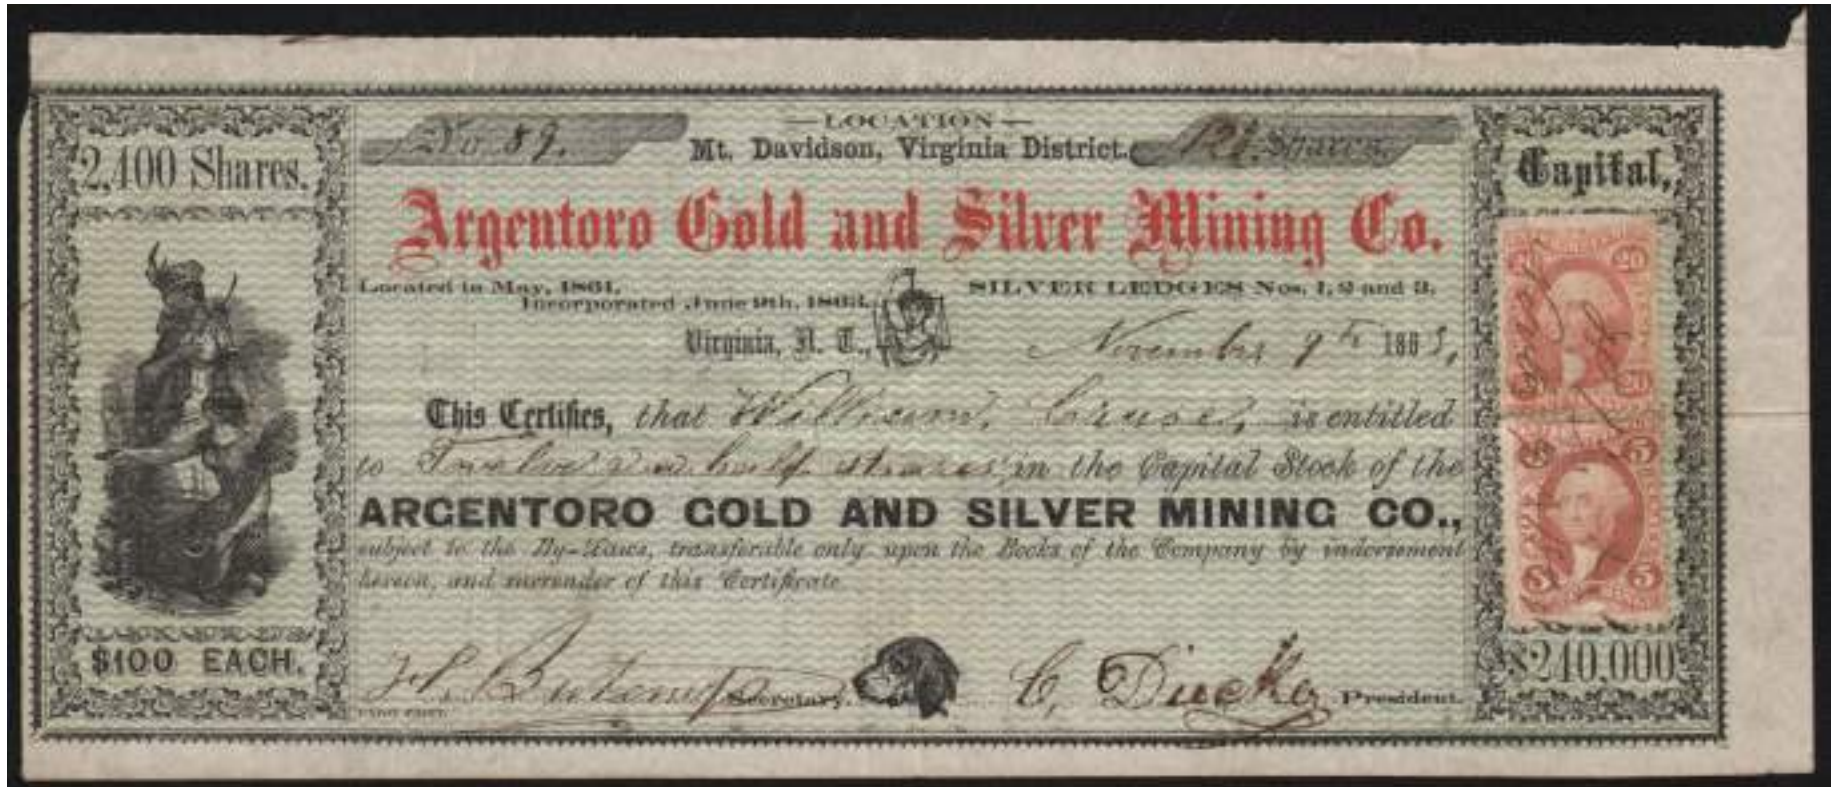 No 89.
— LOCATION —
Mt. Davidson, Virginia District.
12½ Shares.
2,400 Shares.
Capital,
Argentoro Gold and Silver Mining Co.
Located in May, 1861.
Incorporated June 9th, 1863.
SILVER LEDGES Nos. 1, 2 and 3.
Virginia, N. T.,
November 9th 1863,
This Certifies, that William is entitled
to Twelve half shares in the Capital Stock of the
ARGENTORO GOLD AND SILVER MINING CO.,
subject to the By-Laws, transferable only upon the Books of the Company by indorsement
hereon, and surrender of this Certificate
$100 EACH.
Secretary.
President.
$240,000
20
20
5
5
5